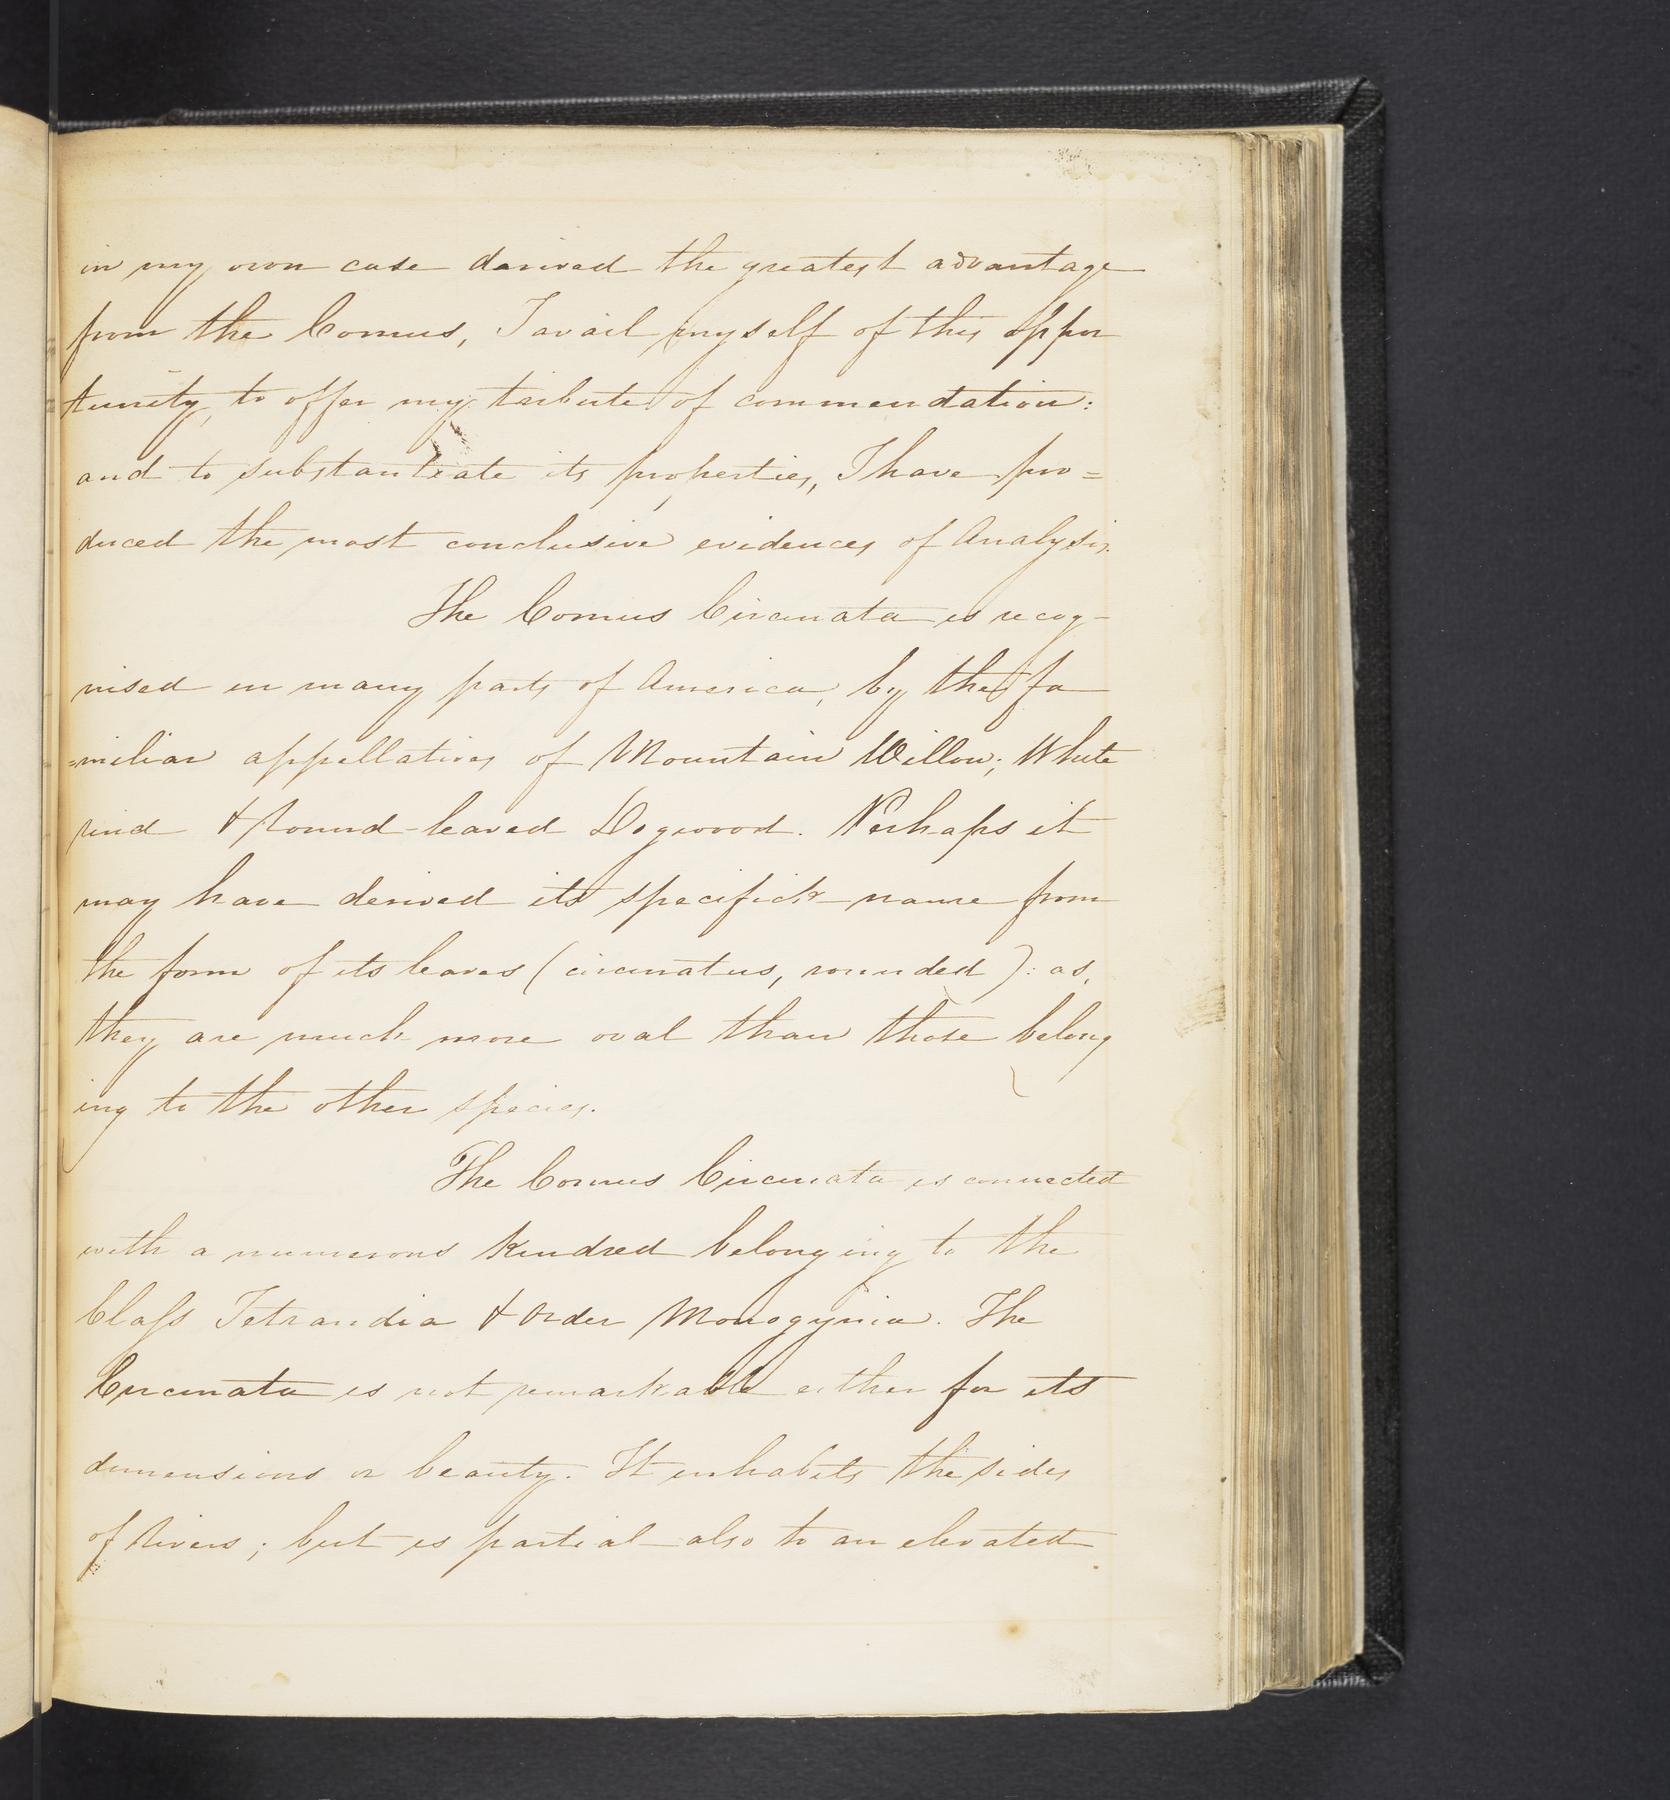 in my own case derived the greatest advantage
from the Cornus, I avail myself of this oppor
tunity, to offer my tribute of commendation:
and to substantiate its properties, I have pro=
duced the most conclusive evidences of Analysis.
The Cornus Circinata is recog-
nised in many parts of America, by the fa
=miliar appellations of Mountain Willow; White
rind & Round-leaved Dogwood. Perhaps it
may have derived its specifick name from
the form of its leaves (circinatus, rounded): as,
they are much more oval than those belong
ing to the other species.
The Cornus Circinata is connected
with a numerous kindred belonging to the
Class Tetrandia & Order Monogynia. The
Circinata is not remarkable either for its
dimensions or beauty. It inhabits the sides
of Rivers; but is partial also to an elevated